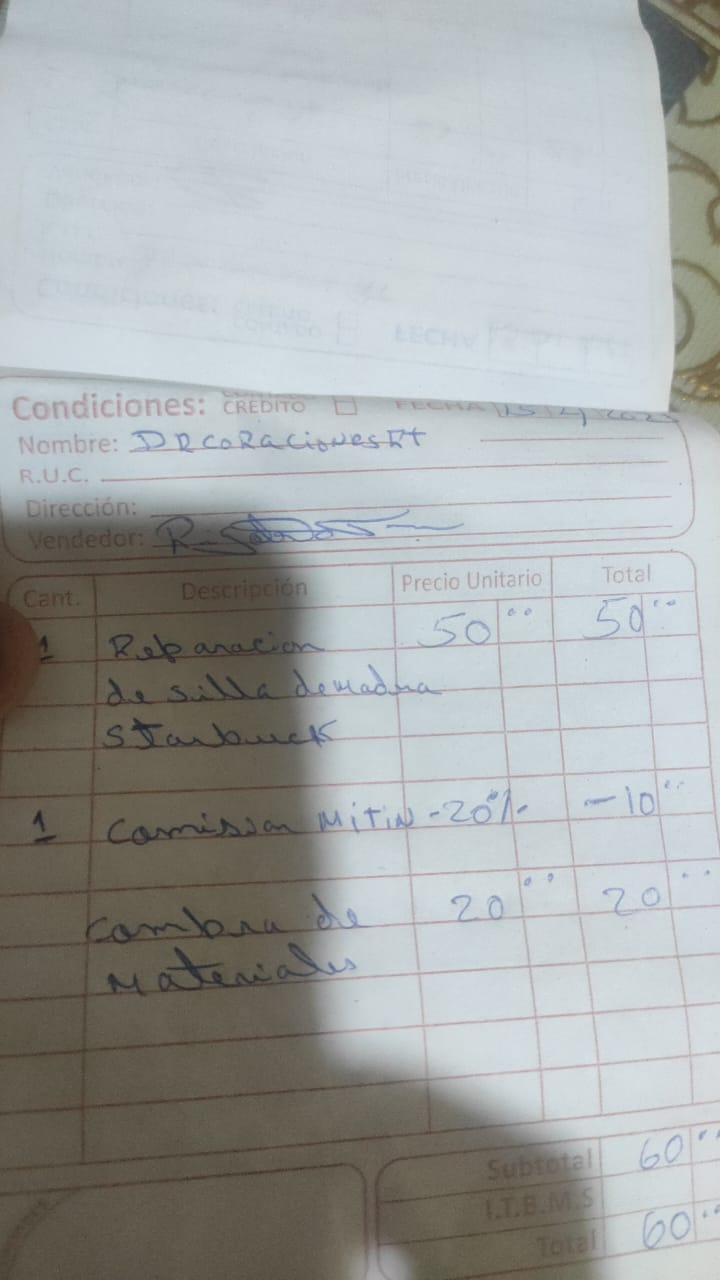 Condiciones: CRÉDITO FECHA 15 4
Nombre: DRcoRacionesRt
R.U.C.
Dirección:
Vendedor:
Cant. Descripción Precio Unitario Total
1 Reparacion 50 00 50 00
de silla de madra
Starbuck
1 Comission MiTiN -20% -10 00
Combra de 20 00 20 00
Materiales
Subtotal 60 00
I.T.B.M.S
Total 60 00